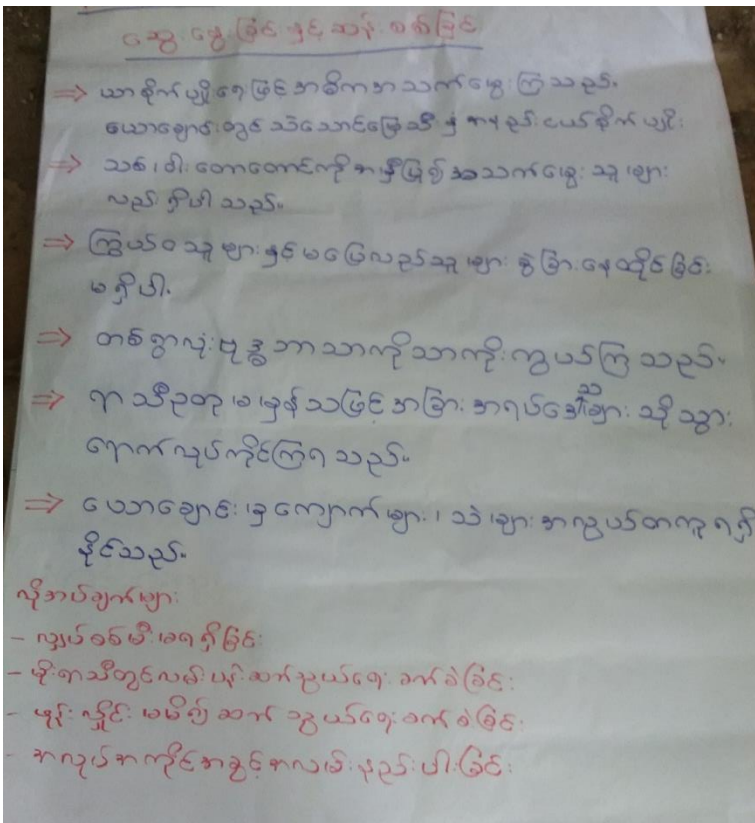 ဆွေးနွေးခြင်းနှင့်ဆန်းစစ်ခြင်
⇒ ယာစိုက်ပျိုးရေဖြင့်အဓိကအသက်မွေးကြသည်။
ယောချောင်းတွင်သဲသောင်မြေသီးနှံအနည်းငယ်စိုက်ပျိုး
⇒ သစ်၊ဝါးတောတောင်ကိုအမှီပြု၍အသက်မွေးသူများ
လည်းရှိပါသည်။
⇒ ကြွယ်ဝသူများနှင့်မပြေလည်သူများခွဲခြားနေထိုင်ခြင်း
မရှိပါ။
⇒ တစ်ရွာလုံးဗုဒ္ဓဘာသာကိုသာကိုးကွယ်ကြသည်။
⇒ ရာသီဥတုမမှန်သဖြင့်အခြားအရပ်ဒေသများသို့သွား
ရောက်လုပ်ကိုင်ကြရသည်။
⇒ ယောချောင်းမှကျောက်များ၊သဲများအလွယ်တကူရရှိ
နိုင်သည်။
လိုအပ်ချက်များ
- လျှပ်စစ်မီးမရရှိခြင်း
- မိုးရာသီတွင်လမ်းပန်းဆက်သွယ်ရေးခက်ခဲခြင်း
- ဖုန်းလှိုင်းမမိ၍ဆက်သွယ်ရေးခက်ခဲခြင်း
- အလုပ်အကိုင်အခွင့်အလမ်းနည်းပါးခြင်း